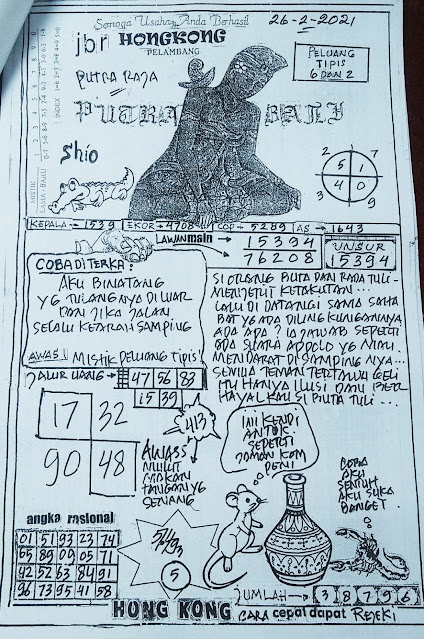 Semoga Usaha Anda Berhasil
26-2-2021
jbr HONGKONG
PELAMBANG
PUTRA RAJA
PELUANG
TIPIS
6 DAN 2
PUTRA BALI
Shio
MISTIK
LAMA - BARU
INDEX
3 2
5 1
4 0
9
KEPALA = 1539 EKOR = 4708 COP = 5289 AS = 1643
LAWAN main → 15394
→ 76208
UNSUR
15394
COBA DI TERKA :
AKU BINATANG
YG TULANGNYA DI LUAR
DAN JIKA JALAN
SELALU KEARAH SAMPING
AWAS! MISTIK PELUANG TIPIS!
SI ORANG BUTA DAN RADA TULI -
MENJERIT KETAKUTAN...
LALU DI DATANGI SAMA SAHA
BAT YG ADA DILINGKUNGANNYA
ADA APA? IA JAWAB SEPERTI
ADA SUARA APOLO YG MAU
MENDARAT DI SAMPINGNYA...
SEMUA TEMAN TERTAWA GELI
ITU HANYA ILUSI DAN BER
HAYAL KAU SI BUTA TULI...
JALUR UANG = 47 56 83
15 39
17 32
90 48
413
AWASS
MULUT
MAKAN
TANGAN YG
SENANG
INI KENDI
ANTIK
SEPERTI
JAMAN KOM
PENI
COBA
AKU
SENTUH
AKU SUKA
BANGET
angka rasional
01 51 93 23 74
65 89 06 05 71
42 52 63 84 91
96 73 95 41 58
5
JUMLAH → 3 8 7 9 6
HONG KONG CARA cepat dapat REJEKI